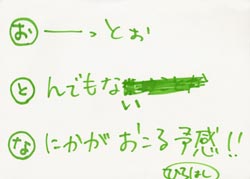 お ーっとぉ
と んでもない
な にかがおこる予感!!
むろはし